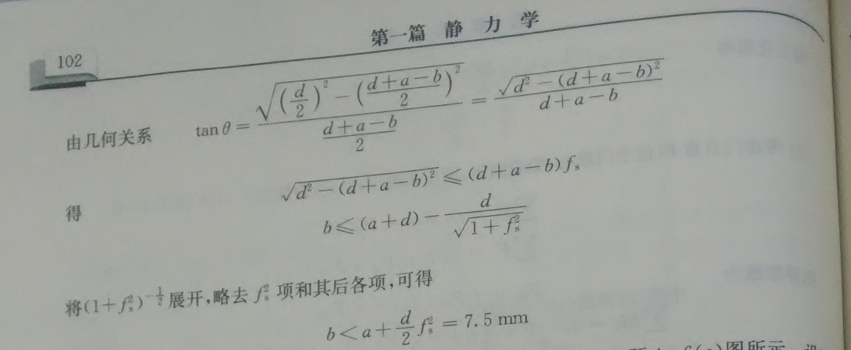 第一篇 静 力 学
102
由几何关系 tanθ = √((d/2)² − ((d+a−b)/2)²) / ((d+a−b)/2) = √(d² − (d+a−b)²) / (d+a−b)
得 √(d² − (d+a−b)²) ≤ (d+a−b)fₛ
b ≤ (a+d) − d/√(1+fₛ²)
将(1+fₛ²)^(−1/2)展开,略去 fₛ² 项和其后各项,可得
b < a + (d/2)fₛ² = 7.5 mm
图所示